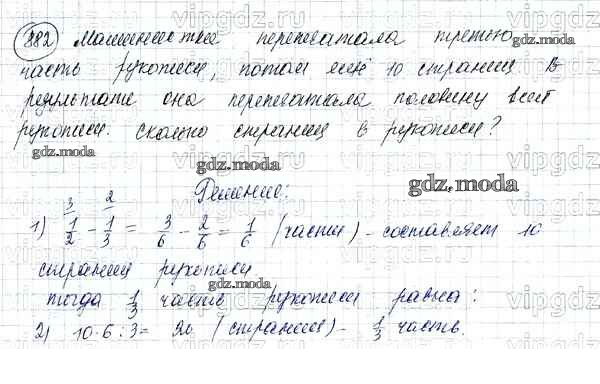 882 Машинистка перепечатала третью
часть рукописи, потом ещё 10 страниц. В
результате она перепечатала половину всей
рукописи. Сколько страниц в рукописи?
gdz.moda
Решение:
1) 1/2 (3) - 1/3 (2) = 3/6 - 2/6 = 1/6 (части) - составляет 10
страниц рукописи
тогда 1/3 часть рукописи равна:
2) 10·6:3 = 20 (страниц) - 1/3 часть.
gdz.moda
vipgdz.ru